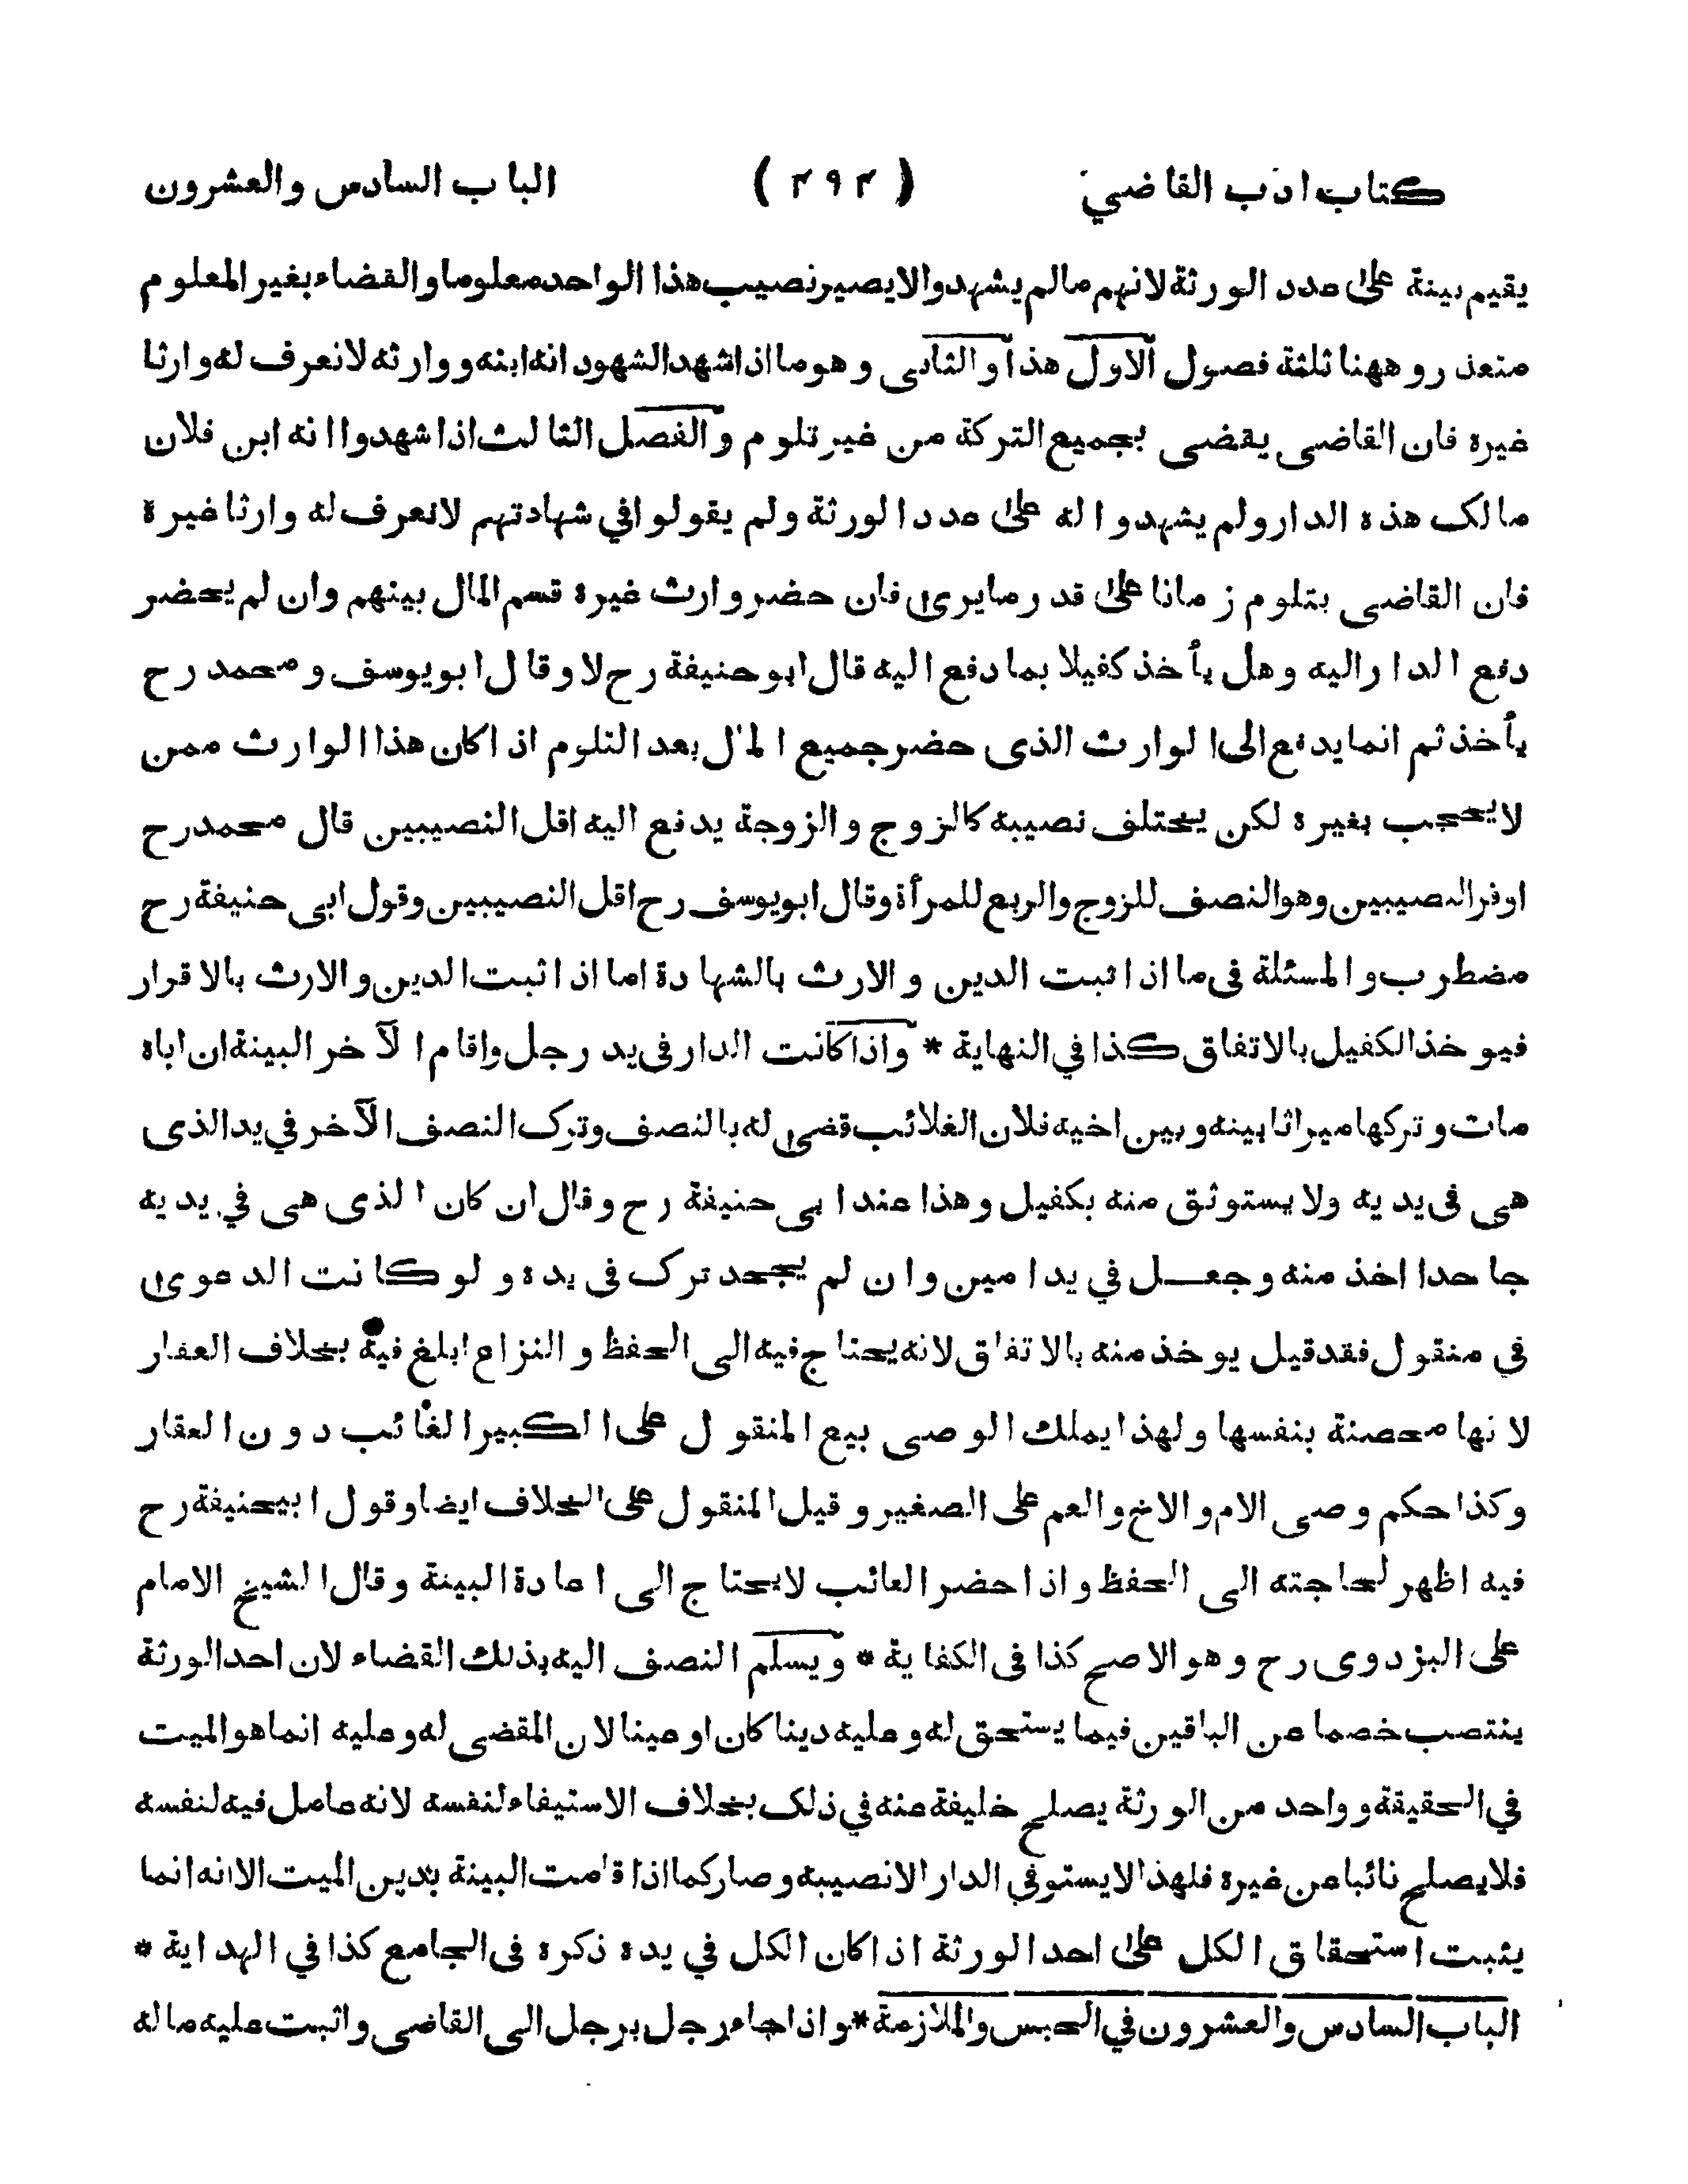 كتاب ادب القاضي ( ٤٩٤ ) الباب السادس والعشرون
يقيم بينة على عدد الورثة لانهم مالم يشهدوا لا يصير نصيب هذا الواحد معلوما والقضاء بغير المعلوم
متعذر وههنا ثلثة فصول الاول هذا والثاني وهو ما اذا شهد الشهود انه ابنه ووارثه لا نعرف له وارثا
غيره فان القاضي يقضى بجميع التركة من غير تلوم والفصل الثالث اذا شهدوا انه ابن فلان
مالك هذه الدار ولم يشهدوا له على عدد الورثة ولم يقولوا في شهادتهم لا نعرف له وارثا غيرة
فان القاضى يتلوم زمانا على قدر ما يرى فان حضر وارث غيره قسم المال بينهم وان لم يحضر
دفع الدار اليه وهل يأخذ كفيلا بما دفع اليه قال ابو حنيفة رح لا وقال ابو يوسف ومحمد رح
يأخذ ثم انما يدفع الى الوارث الذى حضر جميع المال بعد التلوم اذا كان هذا الوارث ممن
لا يحجب بغيره لكن يختلف نصيبه كالزوج والزوجة يدفع اليه اقل النصيبين قال محمد رح
اوفر النصيبين وهو النصف للزوج والربع للمرأة وقال ابو يوسف رح اقل النصيبين وقول ابى حنيفة رح
مضطرب والمسئلة فى ما اذا ثبت الدين والارث بالشهادة اما اذا ثبت الدين والارث بالاقرار
فيوخذ الكفيل بالاتفاق كذا في النهاية * واذا كانت الدار فى يد رجل واقام الآخر البينة ان اباه
مات وتركها ميراثا بينه وبين اخيه فلان الغائب قضى له بالنصف وترك النصف الآخر في يد الذى
هى فى يديه ولا يستوثق منه بكفيل وهذا عند ابى حنيفة رح وقال ان كان الذى هى في يديه
جاحدا اخذ منه وجعل في يد امين وان لم يجحد ترك فى يده ولو كانت الدعوى
فى منقول فقد قيل يوخذ منه بالاتفاق لانه يحتاج فيه الى الحفظ والنزاع ابلغ فيه بخلاف العقار
لانها محصنة بنفسها ولهذا يملك الوصى بيع المنقول على الكبير الغائب دون العقار
وكذا حكم وصى الام والاخ والعم على الصغير وقيل المنقول على الخلاف ايضا وقول ابيحنيفة رح
فيه اظهر لحاجته الى الحفظ واذا حضر الغائب لا يحتاج الى اعادة البينة وقال الشيخ الامام
على البزدوى رح وهو الاصح كذا فى الكفاية * ويسلم النصف اليه بذلك القضاء لان احد الورثة
ينتصب خصما عن الباقين فيما يستحق له وعليه دينا كان او عينا لان المقضى له وعليه انما هو الميت
في الحقيقة وواحد من الورثة يصلح خليفة عنه في ذلك بخلاف الاستيفاء لنفسه لانه عامل فيه لنفسه
فلا يصلح نائبا عن غيره فلهذا لا يستوفي الدار الا نصيبه وصار كما اذا قامت البينة بدين الميت الا انه انما
يثبت استحقاق الكل على احد الورثة اذا كان الكل في يده ذكره فى الجامع كذا في الهداية *
الباب السادس والعشرون في الحبس والملازمة * واذا جاء رجل برجل الى القاضى واثبت عليه ما له